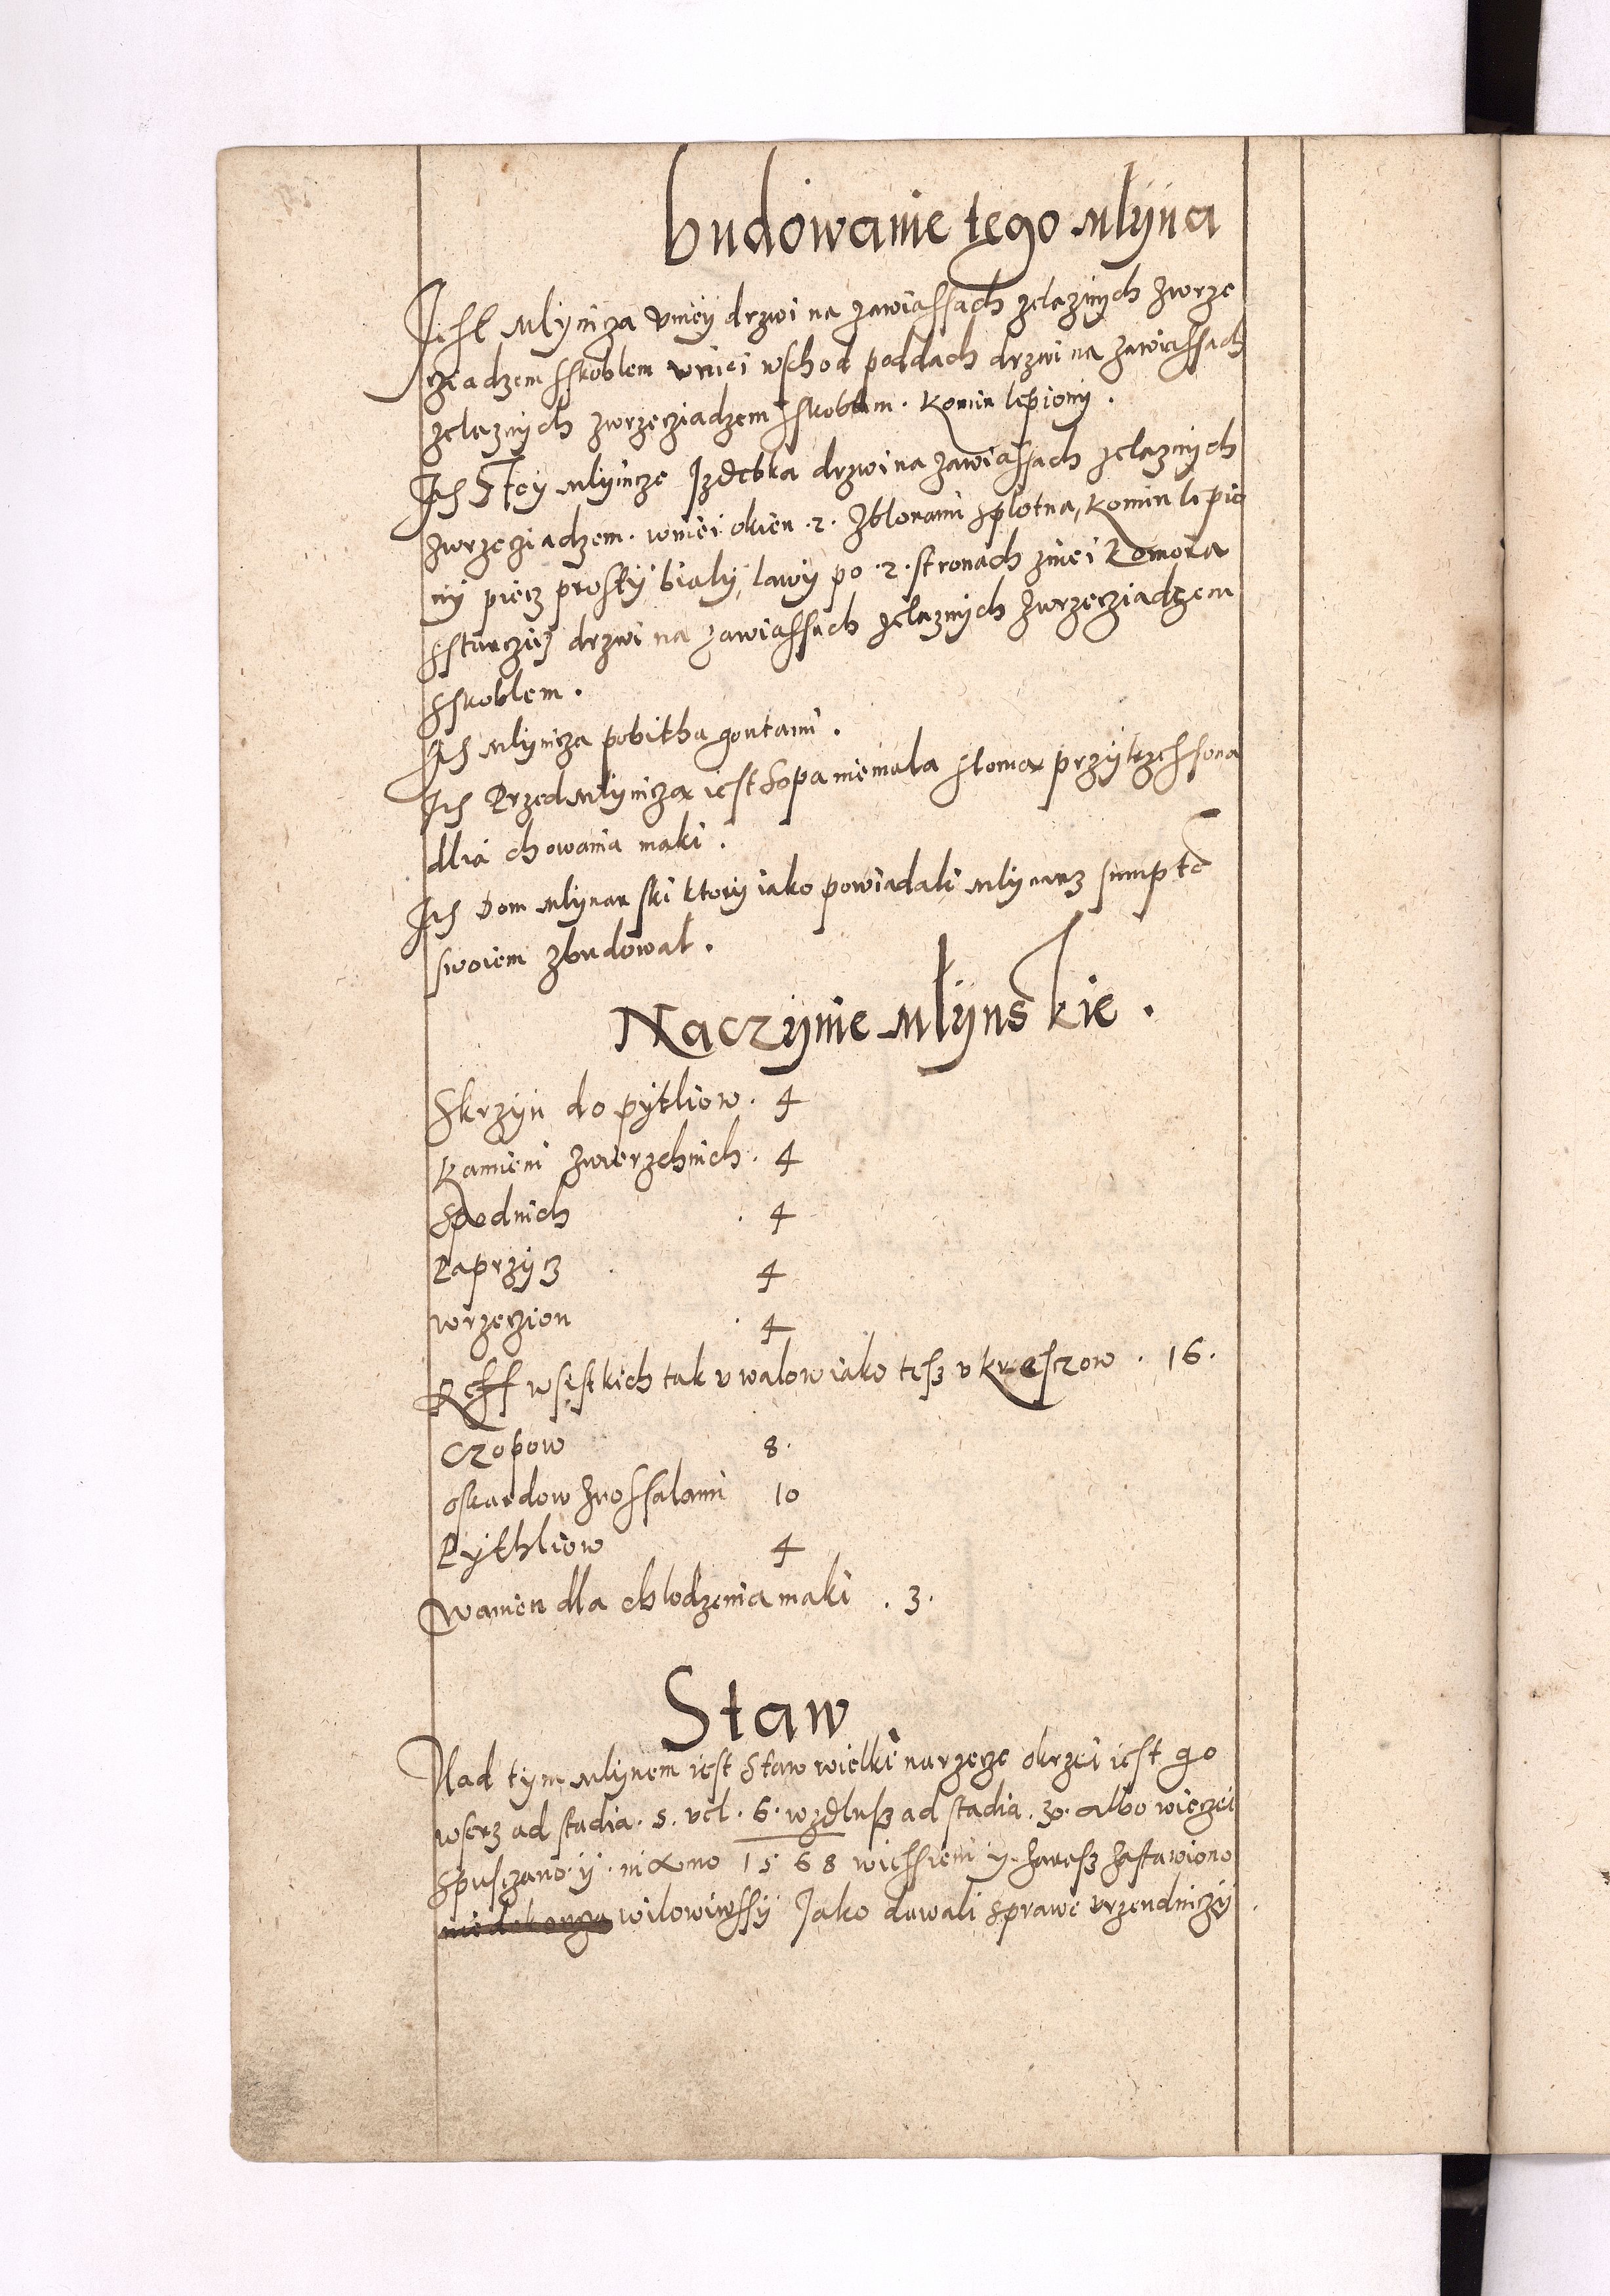 budowanie tego mlÿna
Jest mlÿnicza vnieÿ drzwi na zawiassach zelaznÿch zwrze
cziadzem sskoblem vniei wschod poddach drzwi na zawiassach
zelaznÿch zwrzecziadzem sskoblem. komin lepionÿ.
Jtem Wteÿ mlÿnicze Jzdebka drzwi na zawiassach zelaznÿch
zwrzecziadzem. wniei okien .2. zblonami splotna, komin lepio
nÿ piecz prostÿ bialÿ, lawÿ po .2. stronach zniei komora
drzwi na zawiassach zelaznÿch zwrzecziadzem
sskoblem.
Jtem mlÿnicza pobitha gontami.
Jtem Przed mlÿnicza iest sopa niemala sloma przÿ
dlia chowania maki.
Jtem Dom mlÿnarski ktorÿ iako powiadali mlÿnarz sumpte
swoiem zbudowal.
Naczÿnie mlÿnskie.
Skrzÿn do pÿtliow. 4
kamieni zwierzchnich. 4
Spodnich . 4
Paprzÿcz . 4
wrzeczion . 4
Reff wsistkich tak v walow iako tesz v . 16.
czopow 8.
oskardow 10
Pÿthliow 4
wanien dla chlodzenia maki . 3.
Staw
Nad tÿm mlÿnem iest Staw wielki na rzecze okrzei iest go
wserz ad stadia. 5. vel. 6. wzdlusz ad stadia. 30. albo wieczei
Spusczano ÿ. in Anno 1568 wiessieni ÿ zarasz zastawiono
wilowiwssÿ Jako dawali sprawe vrzendniczÿ.